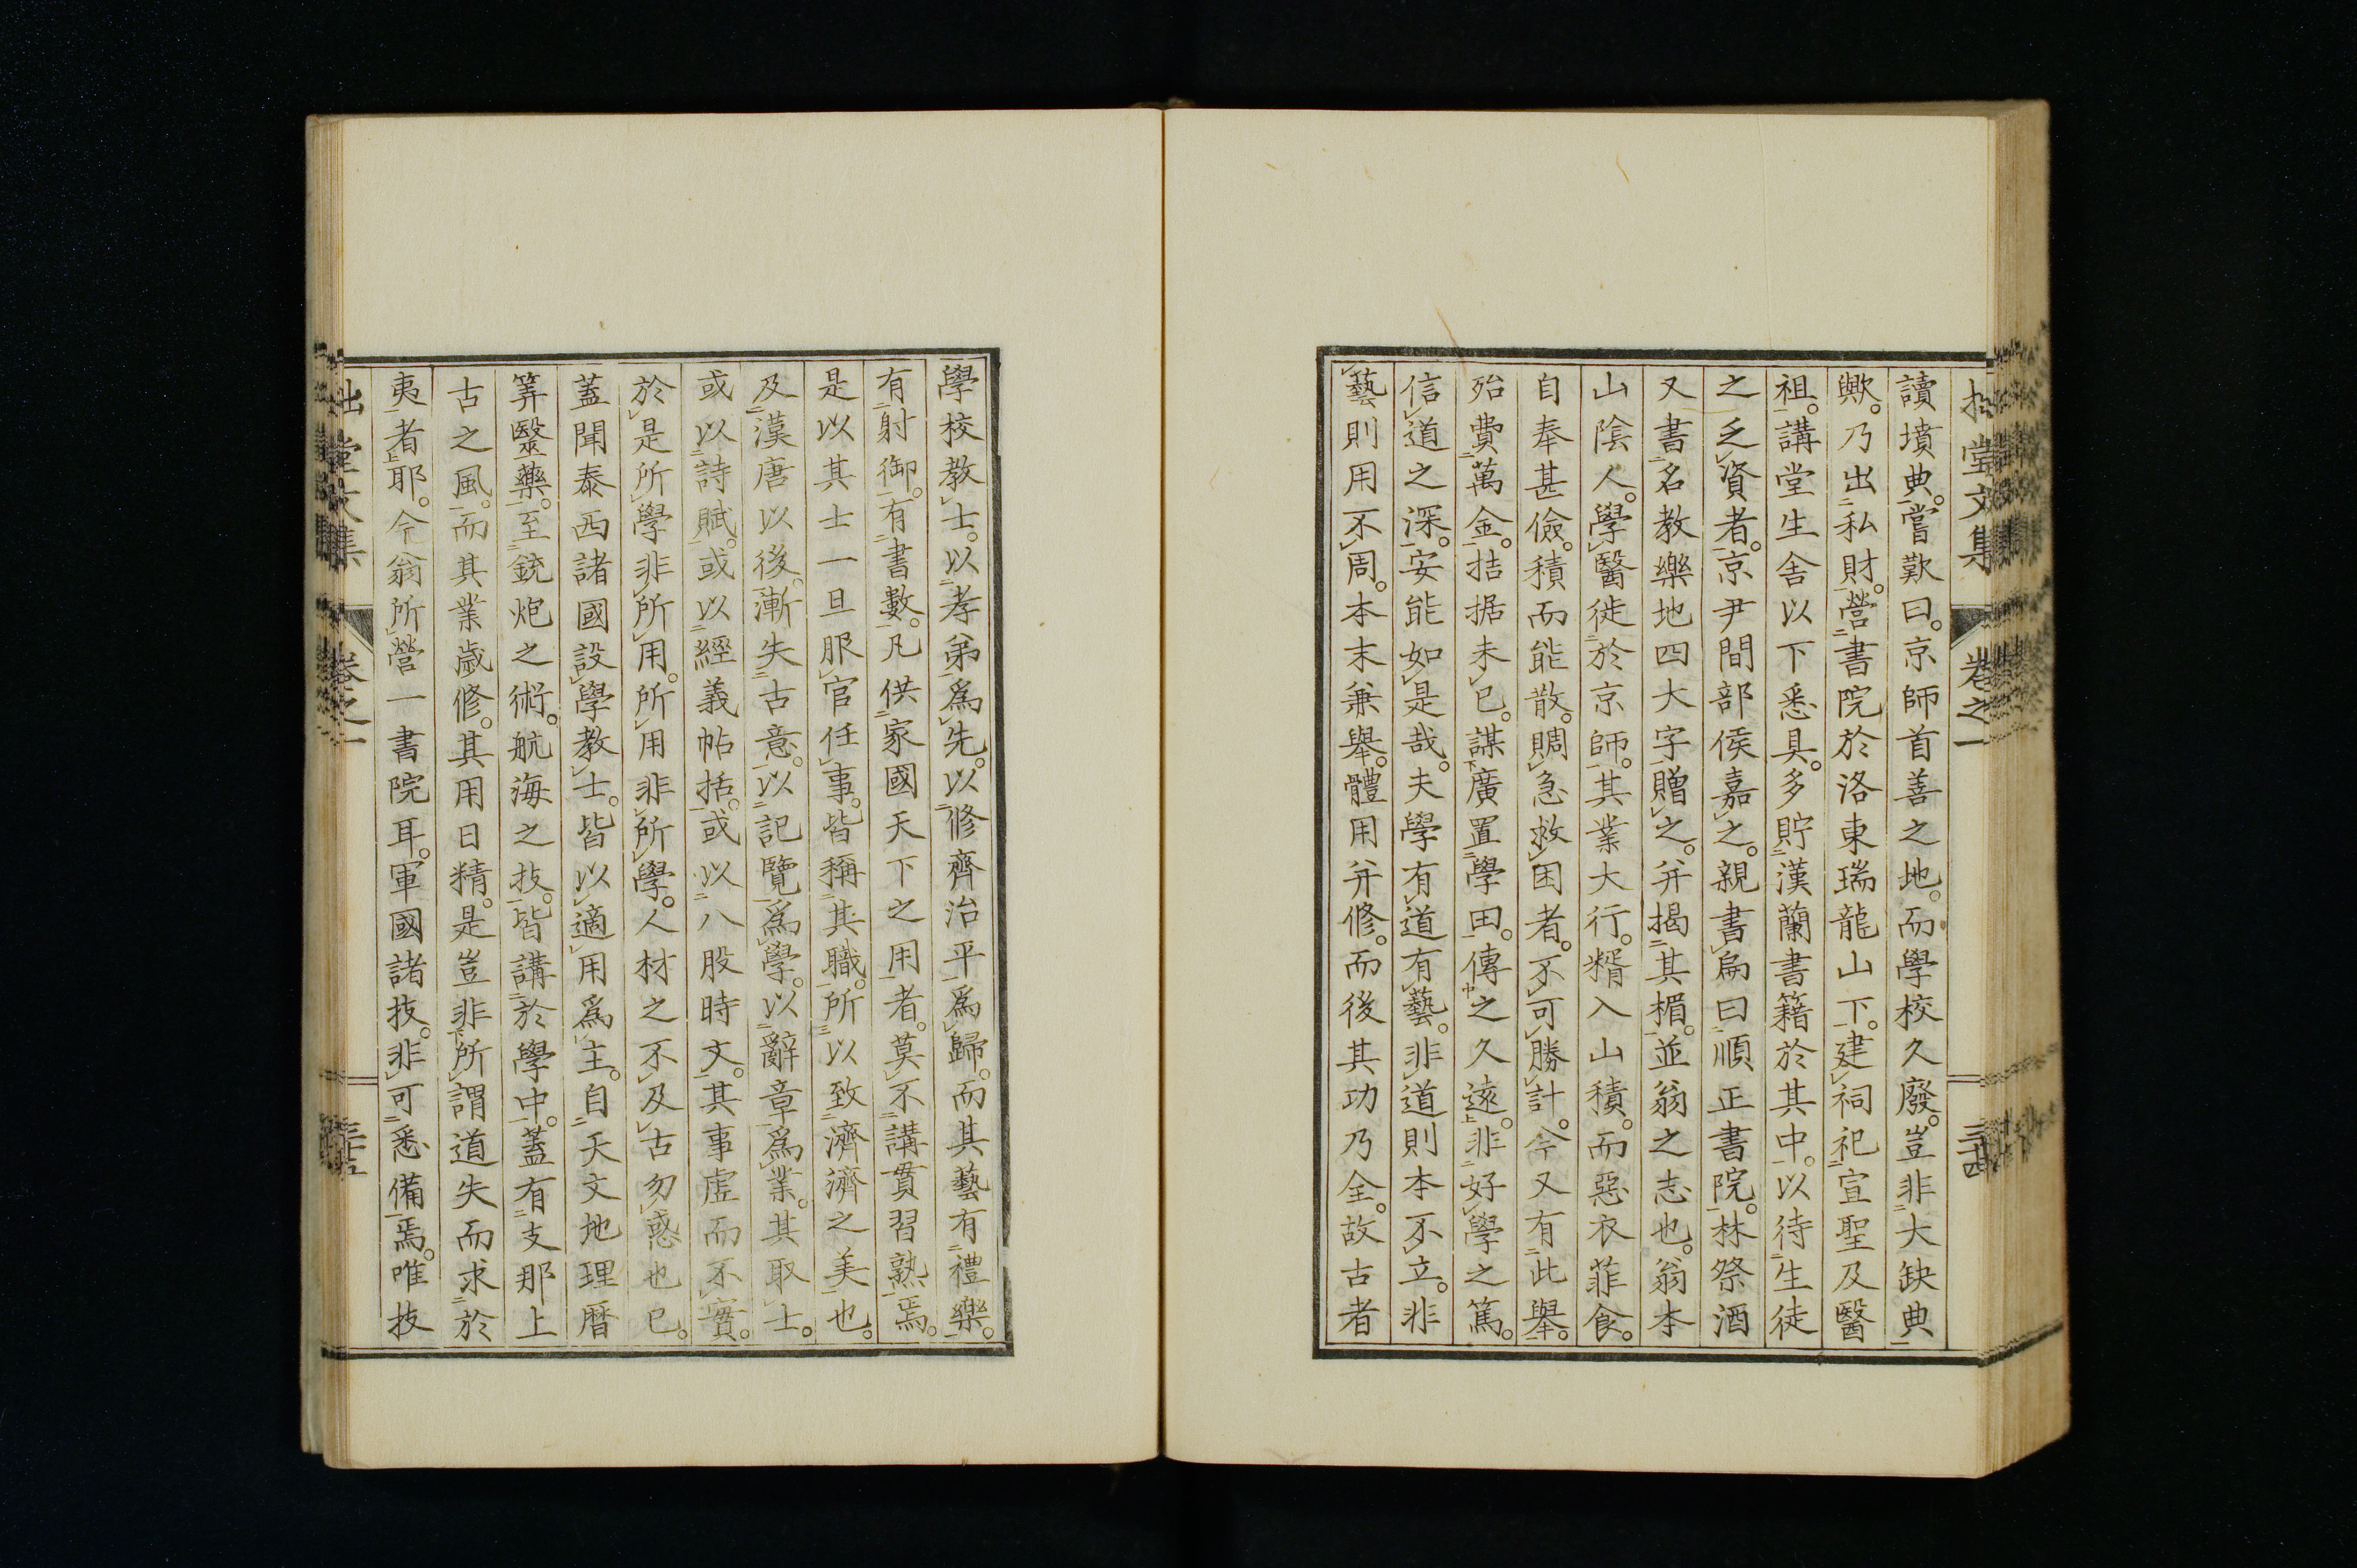 讀墳典。嘗歎曰。京師首善之地。而學校久廢。豈非大缺典
歟。乃出私財。營書院於洛東瑞龍山下。建祠祀宣聖及醫
祖。講堂生舍以下悉具。多貯漢蘭書籍於其中。以待生徒
之乏資者。京尹間部侯嘉之。親書扁曰順正書院。林祭酒
又書名教樂地四大字贈之。并揭其楣。並翁之志也。翁本
山陰人。學醫徙於京師。其業大行。糈入山積。而惡衣菲食。
自奉甚儉。積而能散。賙急救困者。不可勝計。今又有此舉。
殆費萬金。拮据未已。謀廣置學田。傳之久遠。非好學之篤。
信道之深。安能如是哉。夫學有道有藝。非道則本不立。非
藝則用不周。本末兼舉。體用并修。而後其功乃全。故古者
堂文集 卷之一 三十四
學校教士。以孝弟爲先。以修齊治平爲歸。而其藝有禮樂。
有射御。有書數。凡供家國天下之用者。莫不講貫習熟焉。
是以其士一旦服官任事。皆稱其職。所以致濟濟之美也。
及漢唐以後。漸失古意。以記覽爲學。以辭章爲業。其取士。
或以詩賦。或以經義帖括。或以八股時文。其事虛而不實。
於是所學非所用。所用非所學。人材之不及古勿惑也已。
蓋聞泰西諸國設學教士。皆以適用爲主。自天文地理曆
筭毉藥。至銃炮之術。航海之技。皆講於學中。蓋有支那上
古之風。而其業歲修。其用日精。是豈非所謂道失而求於
夷者耶。今翁所營一書院耳。軍國諸技。非可悉備焉。唯技
拙堂文集 卷之一 三十五